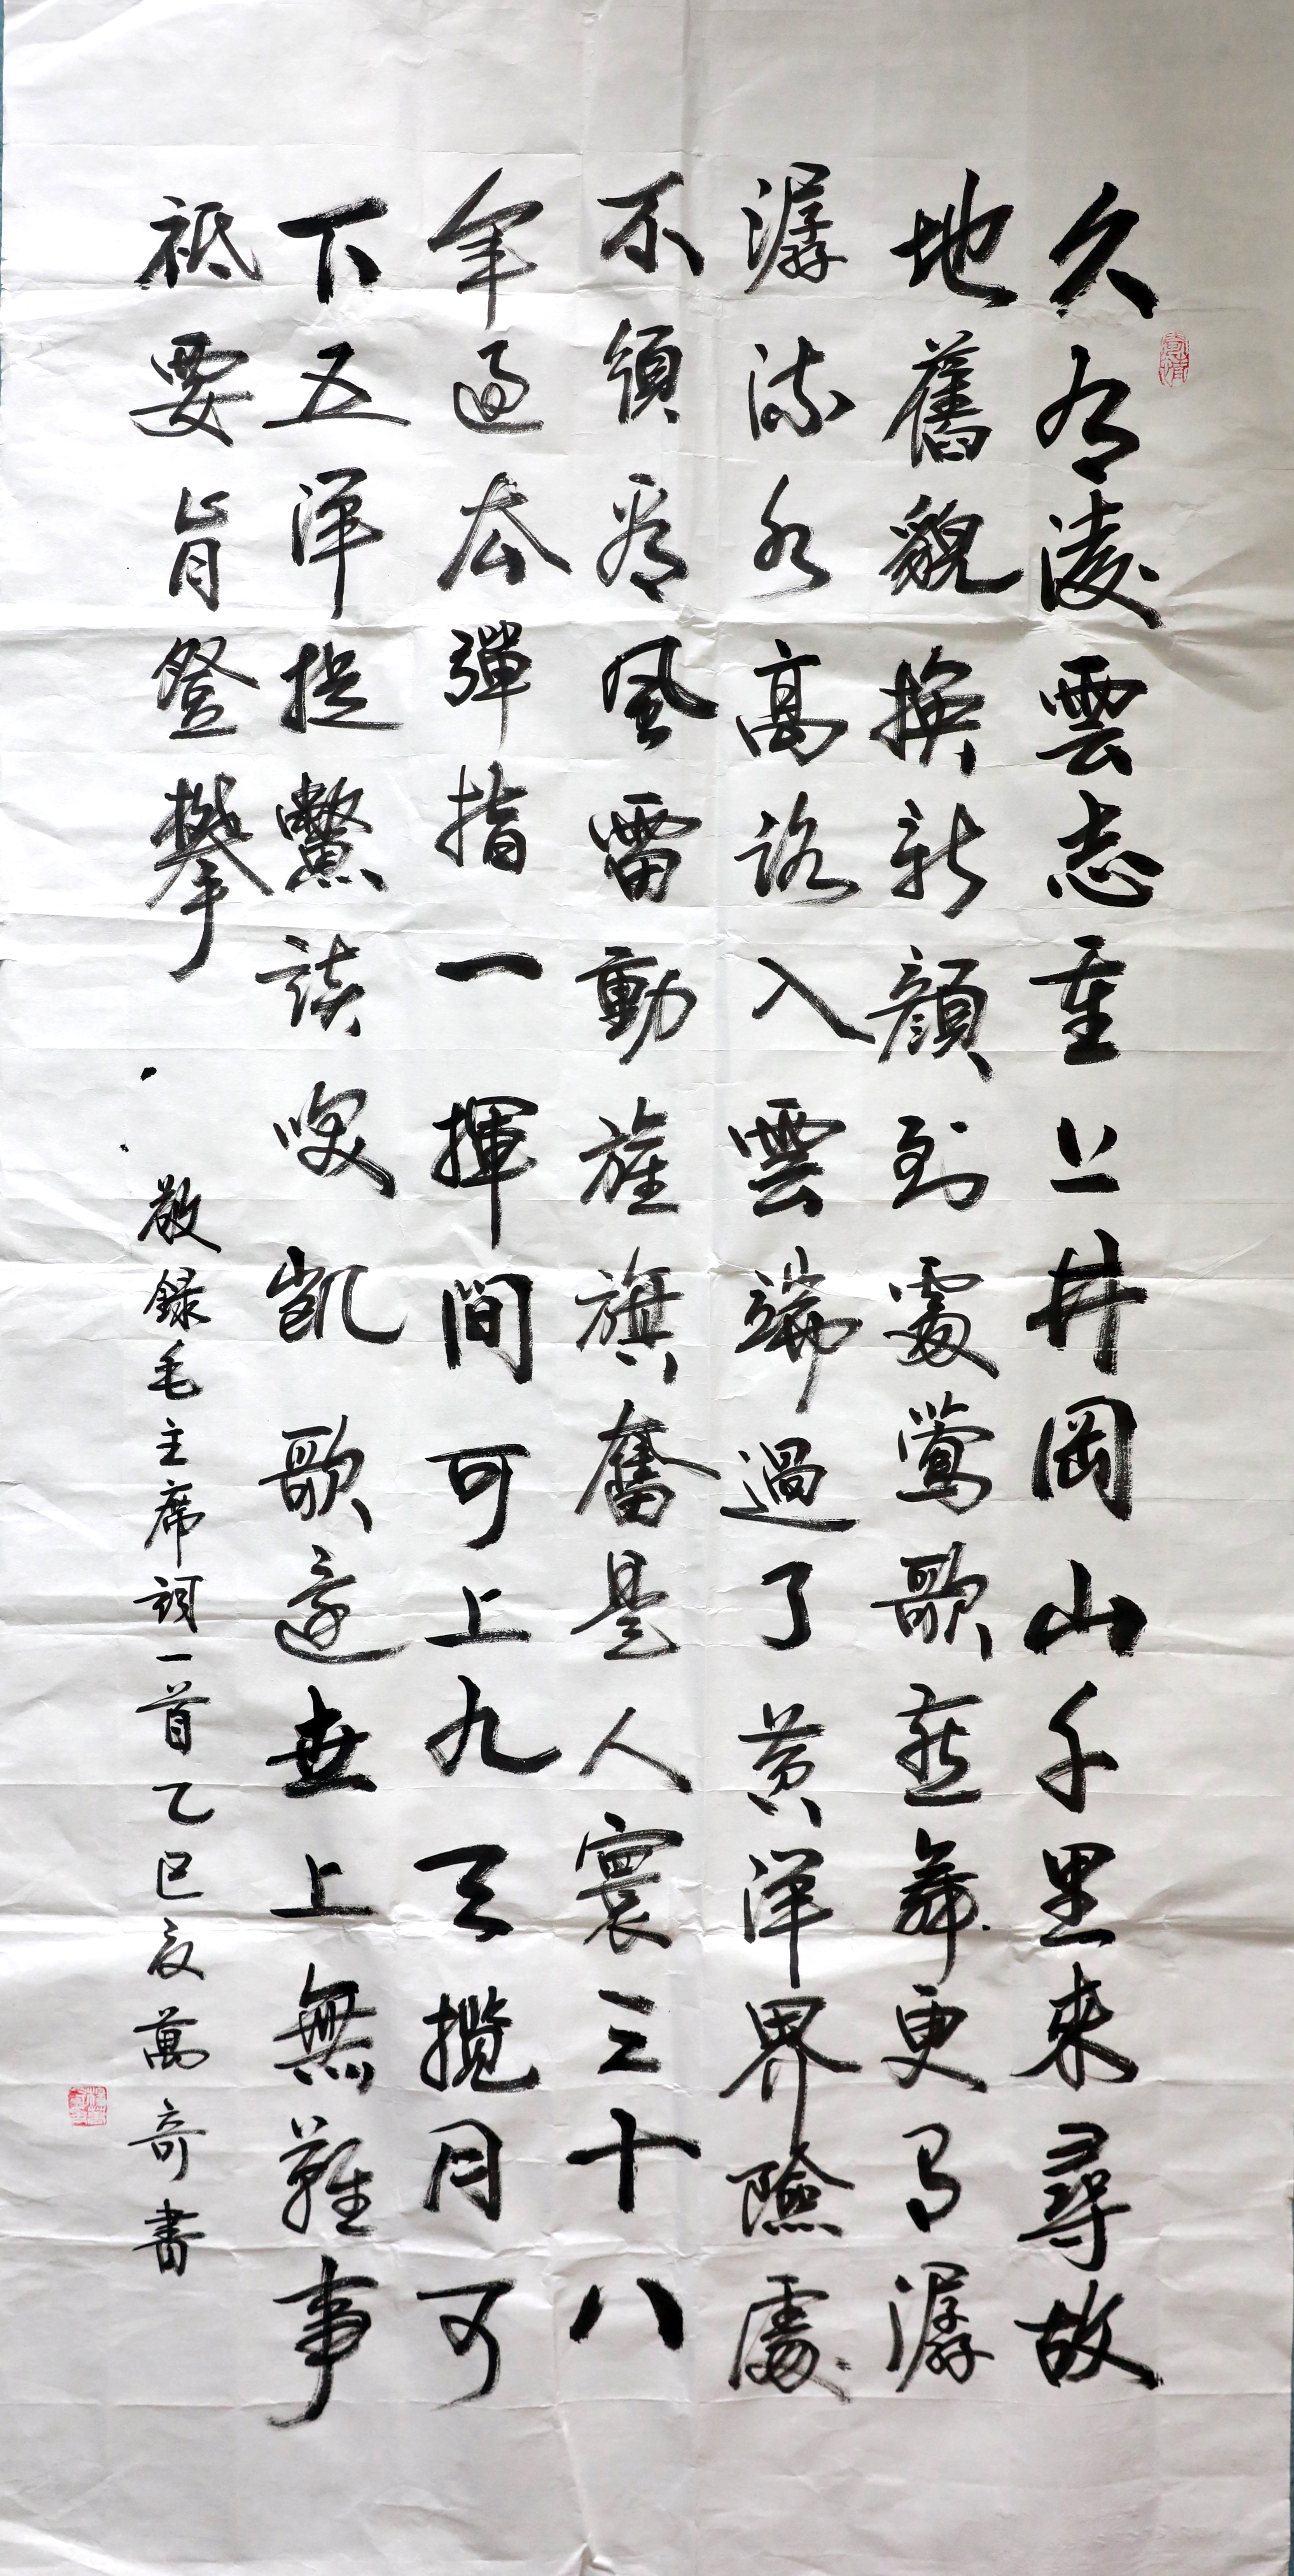 久有淩雲志重上井岡山千里来尋故
地舊貌換新顏到處鶯歌燕舞更有潺
潺流水高路入雲端過了黄洋界險處
不須看風雷動旌旗奮是人寰三十八
年過去彈指一揮間可上九天攬月可
下五洋捉鱉談咲凱歌還世上無難事
祗要肯登攀
敬録毛主席詞一首乙巳夏萬奇書